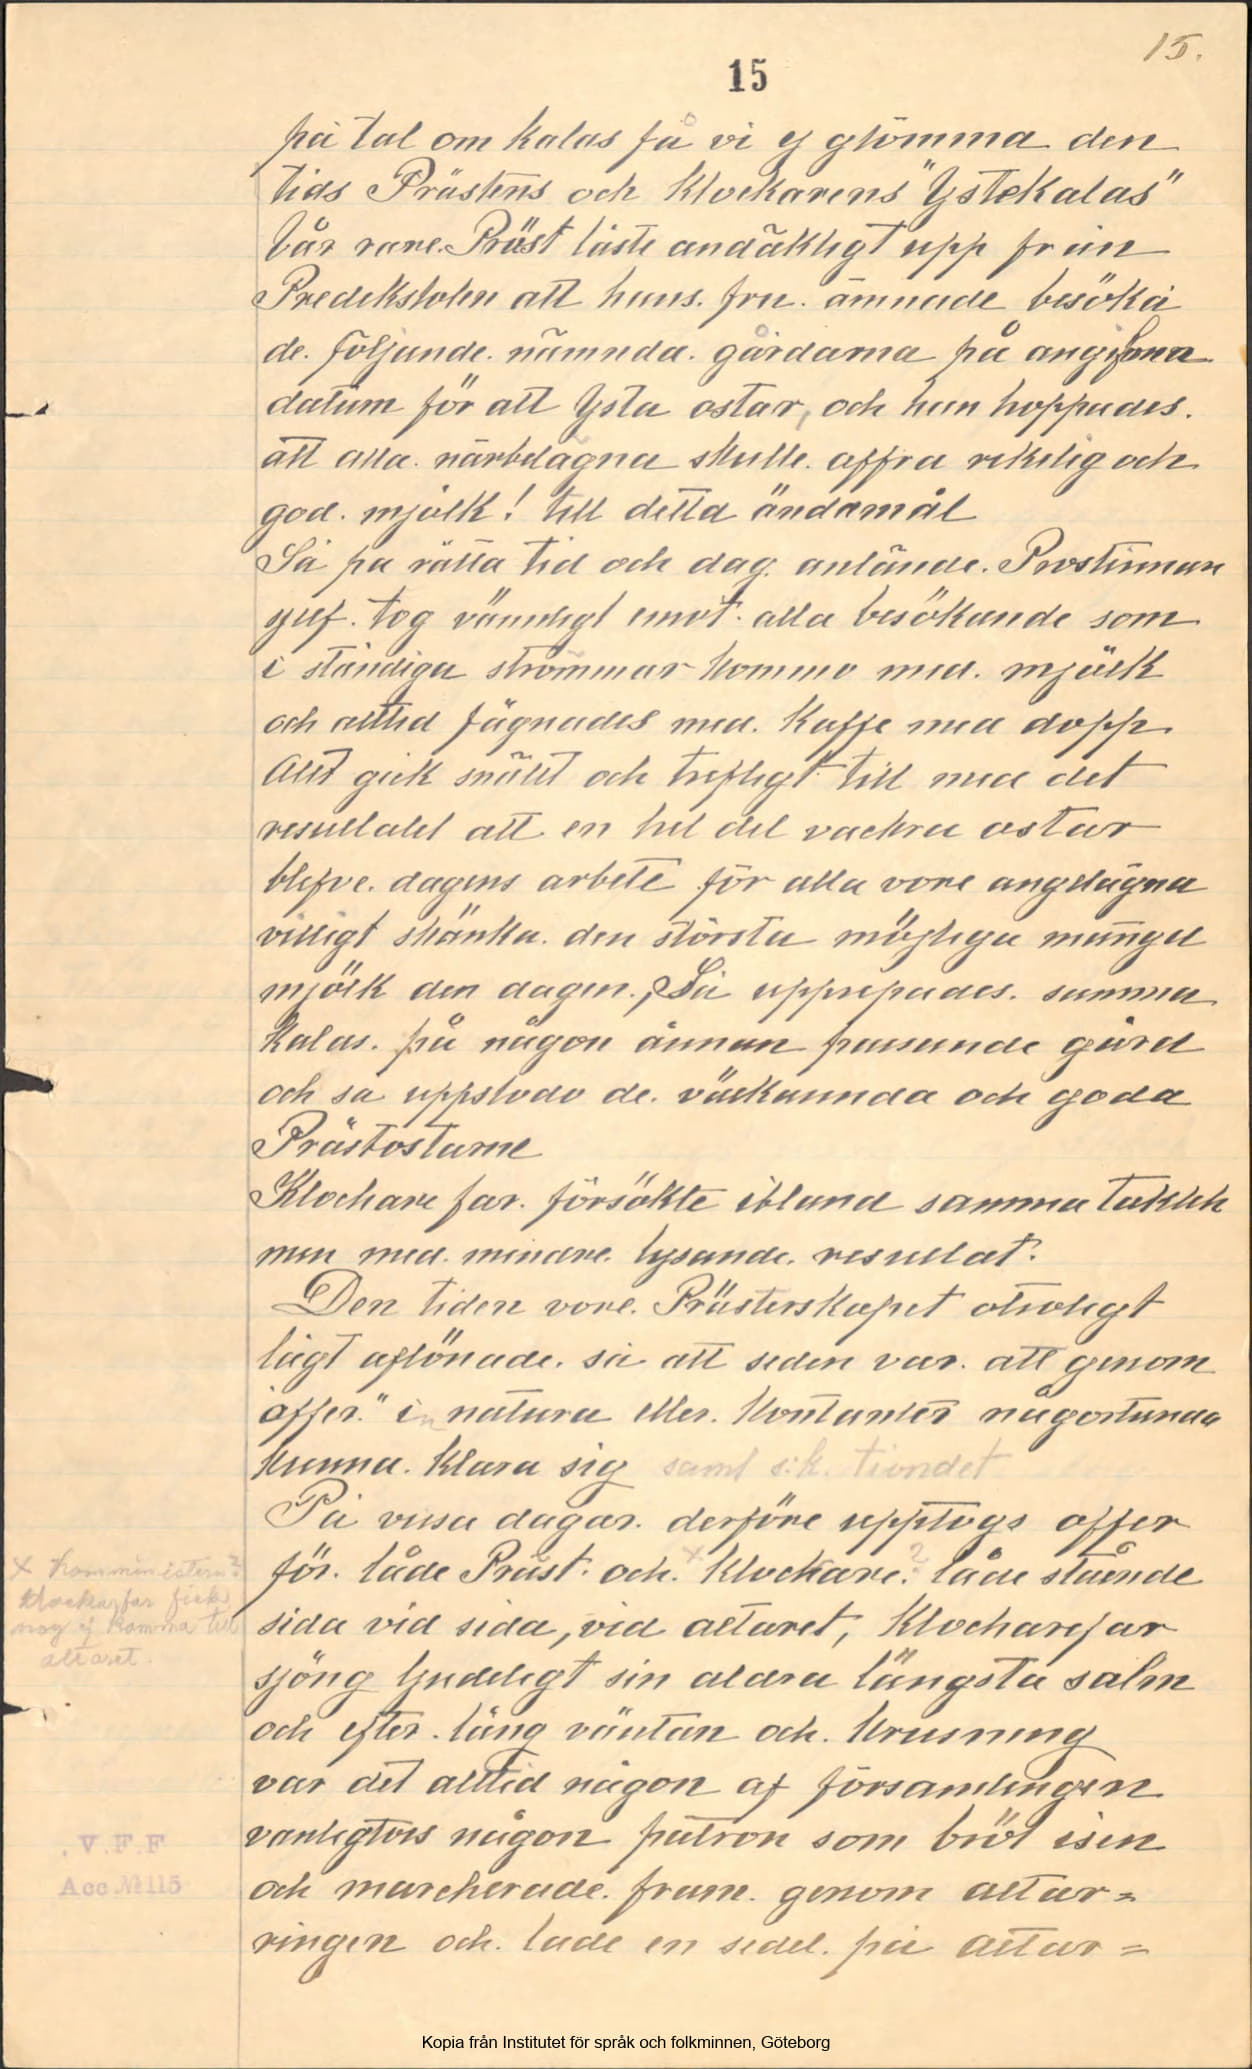 15.
15
på tal om kalas få vi ej glömma den
tids Prästens och Klockarens "Ystekalas"
Vår rare. Präst läste andäktigt upp från
Predikstolen att hans. fru. ämnade besöka
de. följande. nämnda. gårdarna på angifna
datum för att Ysta ostar, och hun hoppades.
att alla. närbelägna skulle. offra rikelig och
god. mjölk! till detta ändamål
Så på rätta tid och dag. anlände. Prostinnan
sjelf. tog vänligt emot. alla besökande som
i ständiga strömmar kommo med. mjölk
och alltid fägnades med. Kaffe med dopp.
Allt gick snällt och trefligt till med det
resultatet att en hel del vackra ostar
blefve. dagens arbete för alla vore angelägna
villigt skänka. den största möjliga mängd
mjölk den dagen., Så upprepades. samma
Kalas. på någon annan passande gård
och så uppstodo de. välkannda och goda
Prästostarne
Klockare far. försökte ibland samma taktik
men med. mindre. lysande. resultat.
Den tiden vore. Prästerskapet otroligt
lågt aflönade. så att seden var. att genom
"offer." in natura eller. Kontanter någorlunda
kunna. klara sig samt s.k. tiondet
På vissa dagar. derföre upptogs offer
för. både Präst. och. x Klockare.? både stående
x Komministern?
Klockarfar fick
nog ej komma till
altaret.
sida vid sida, vid altaret, Klockarefar
sjöng ljudeligt sin aldra längsta salm
och efter. lång väntan och. Krusning
var det alltid någon af församlingen
vanligtvis någon patron som bröt isen
och marcherade. fram. genom altar=
ringen och. lade en sedel. på altar=
V.F.F
Acc.№115
Kopia från Institutet för språk och folkminnen, Göteborg